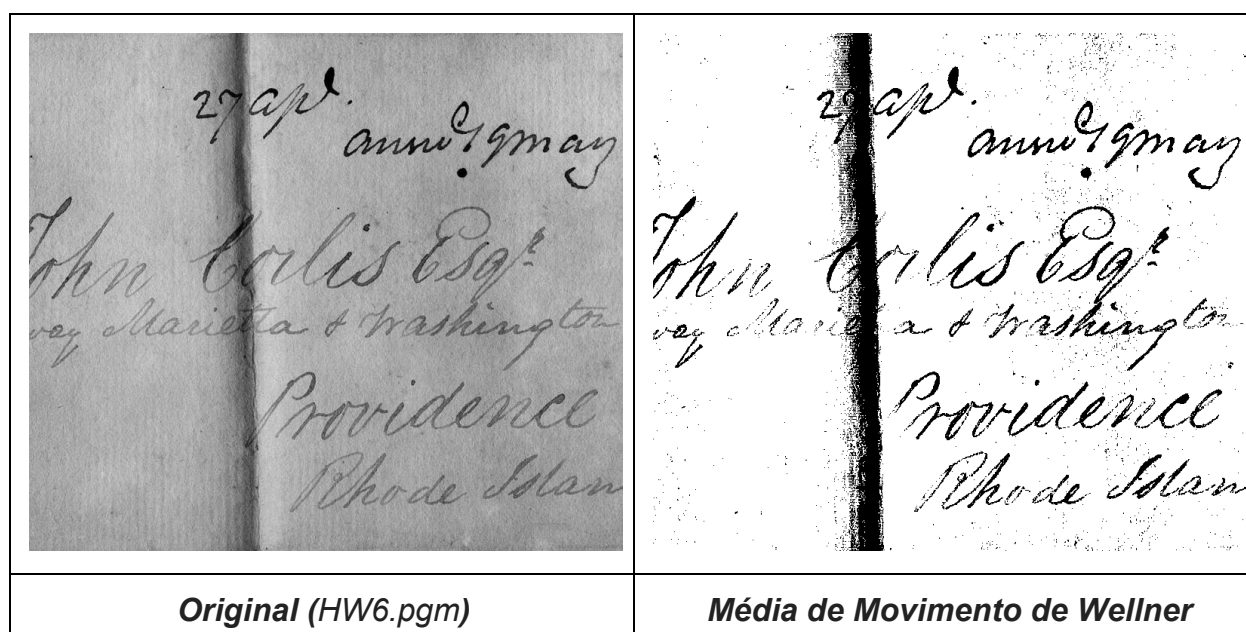 27 apl.
annd 19 may
John Corlis Esqr.
way Marietta & Washington
Providence
Rhode Islan
27 apl.
annd 19 may
John Corlis Esqr.
way Marietta & Washington
Providence
Rhode Islan
Original (HW6.pgm)
Média de Movimento de Wellner